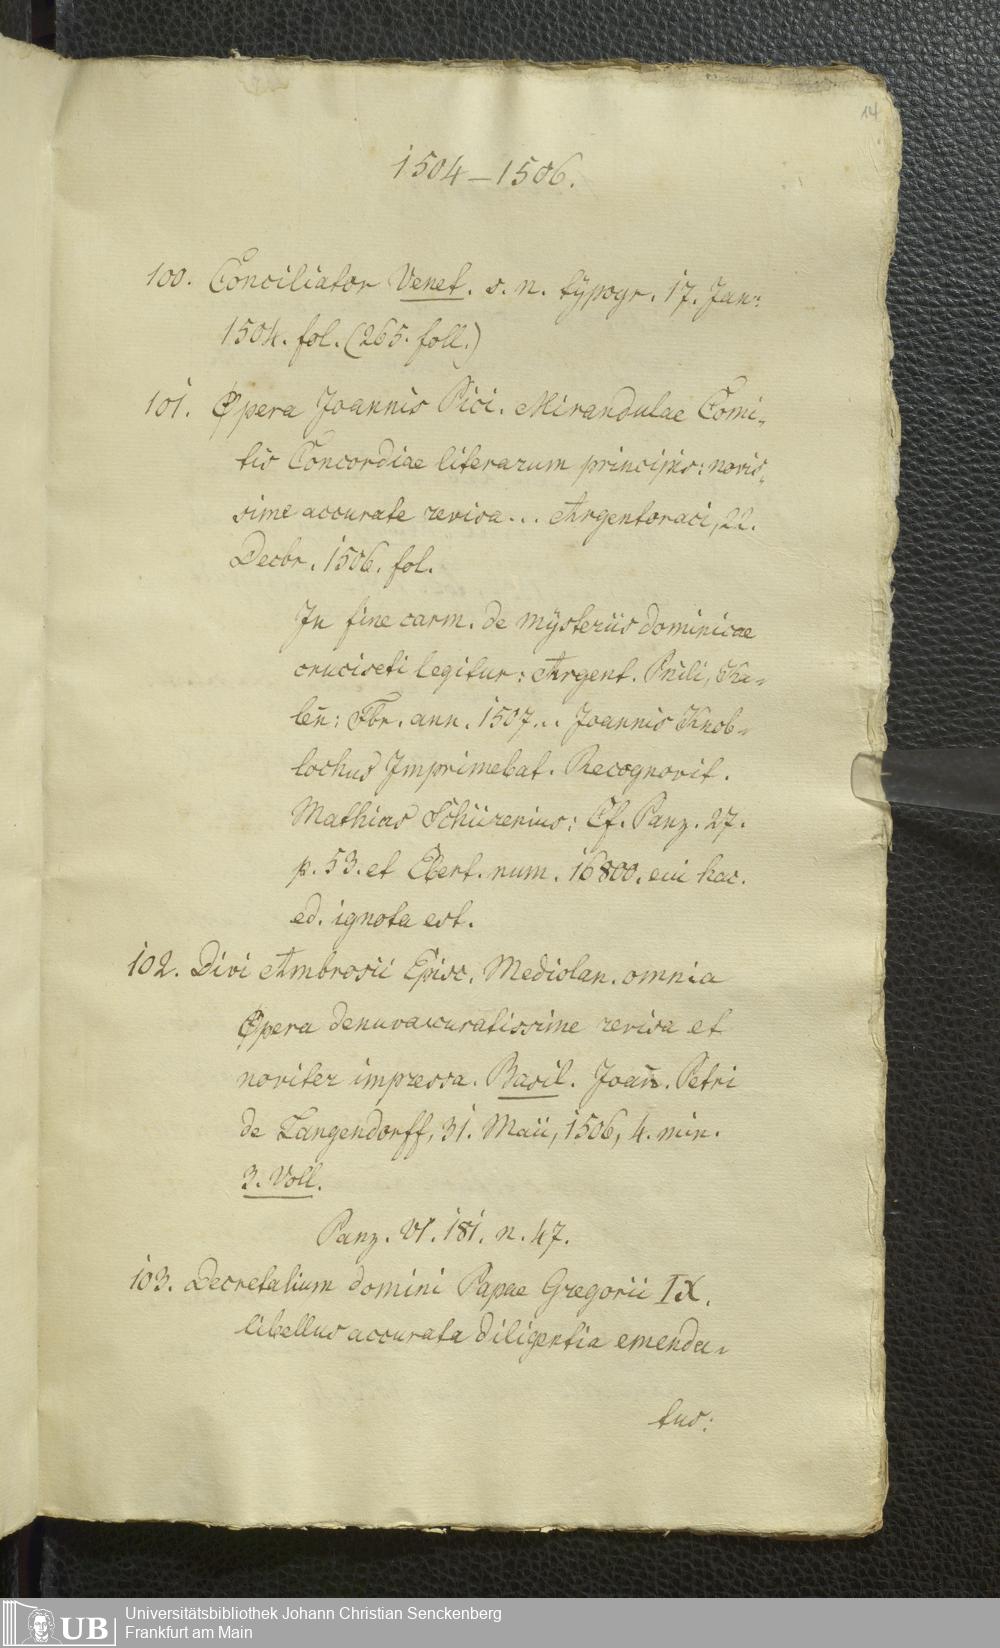 14
1504–1506.
100. Conciliator Venet. s. n. typogr. 17. Jan:
1504. fol. (265. foll.)
101. Opera Joannis Pici. Mirandulae Comi-
tis Concordiae literarum principis: novis-
sime accurate revisa... Argentoraci, 22.
Decbr. 1506. fol.
In fine carm. de mÿsteriis dominicae
crucis eti legitur: Argent. Pridi, Ka-
leñ: Fbr. ann. 1507... Joannis Knob-
lochus Imprimebat. Recognovit.
Mathias Schürenius: Cf. Panz. 27.
p. 53. et Ebert. num. 16800. cui hac.
ed. ignota est.
102. Divi Ambrosii Episc. Mediolan. omnia
Opera denuvaccuratissime revisa et
noviter impressa. Basil. Joañ. Petri
de Langendorff, 31. Maii, 1506, 4. min.
3. Voll.
Panz. VI. 181. n. 47.
103. Decretalium domini Papae Gregorii IX.
libellus accurata diligentia emenda-
tus:
UB
Universitätsbibliothek Johann Christian Senckenberg
Frankfurt am Main